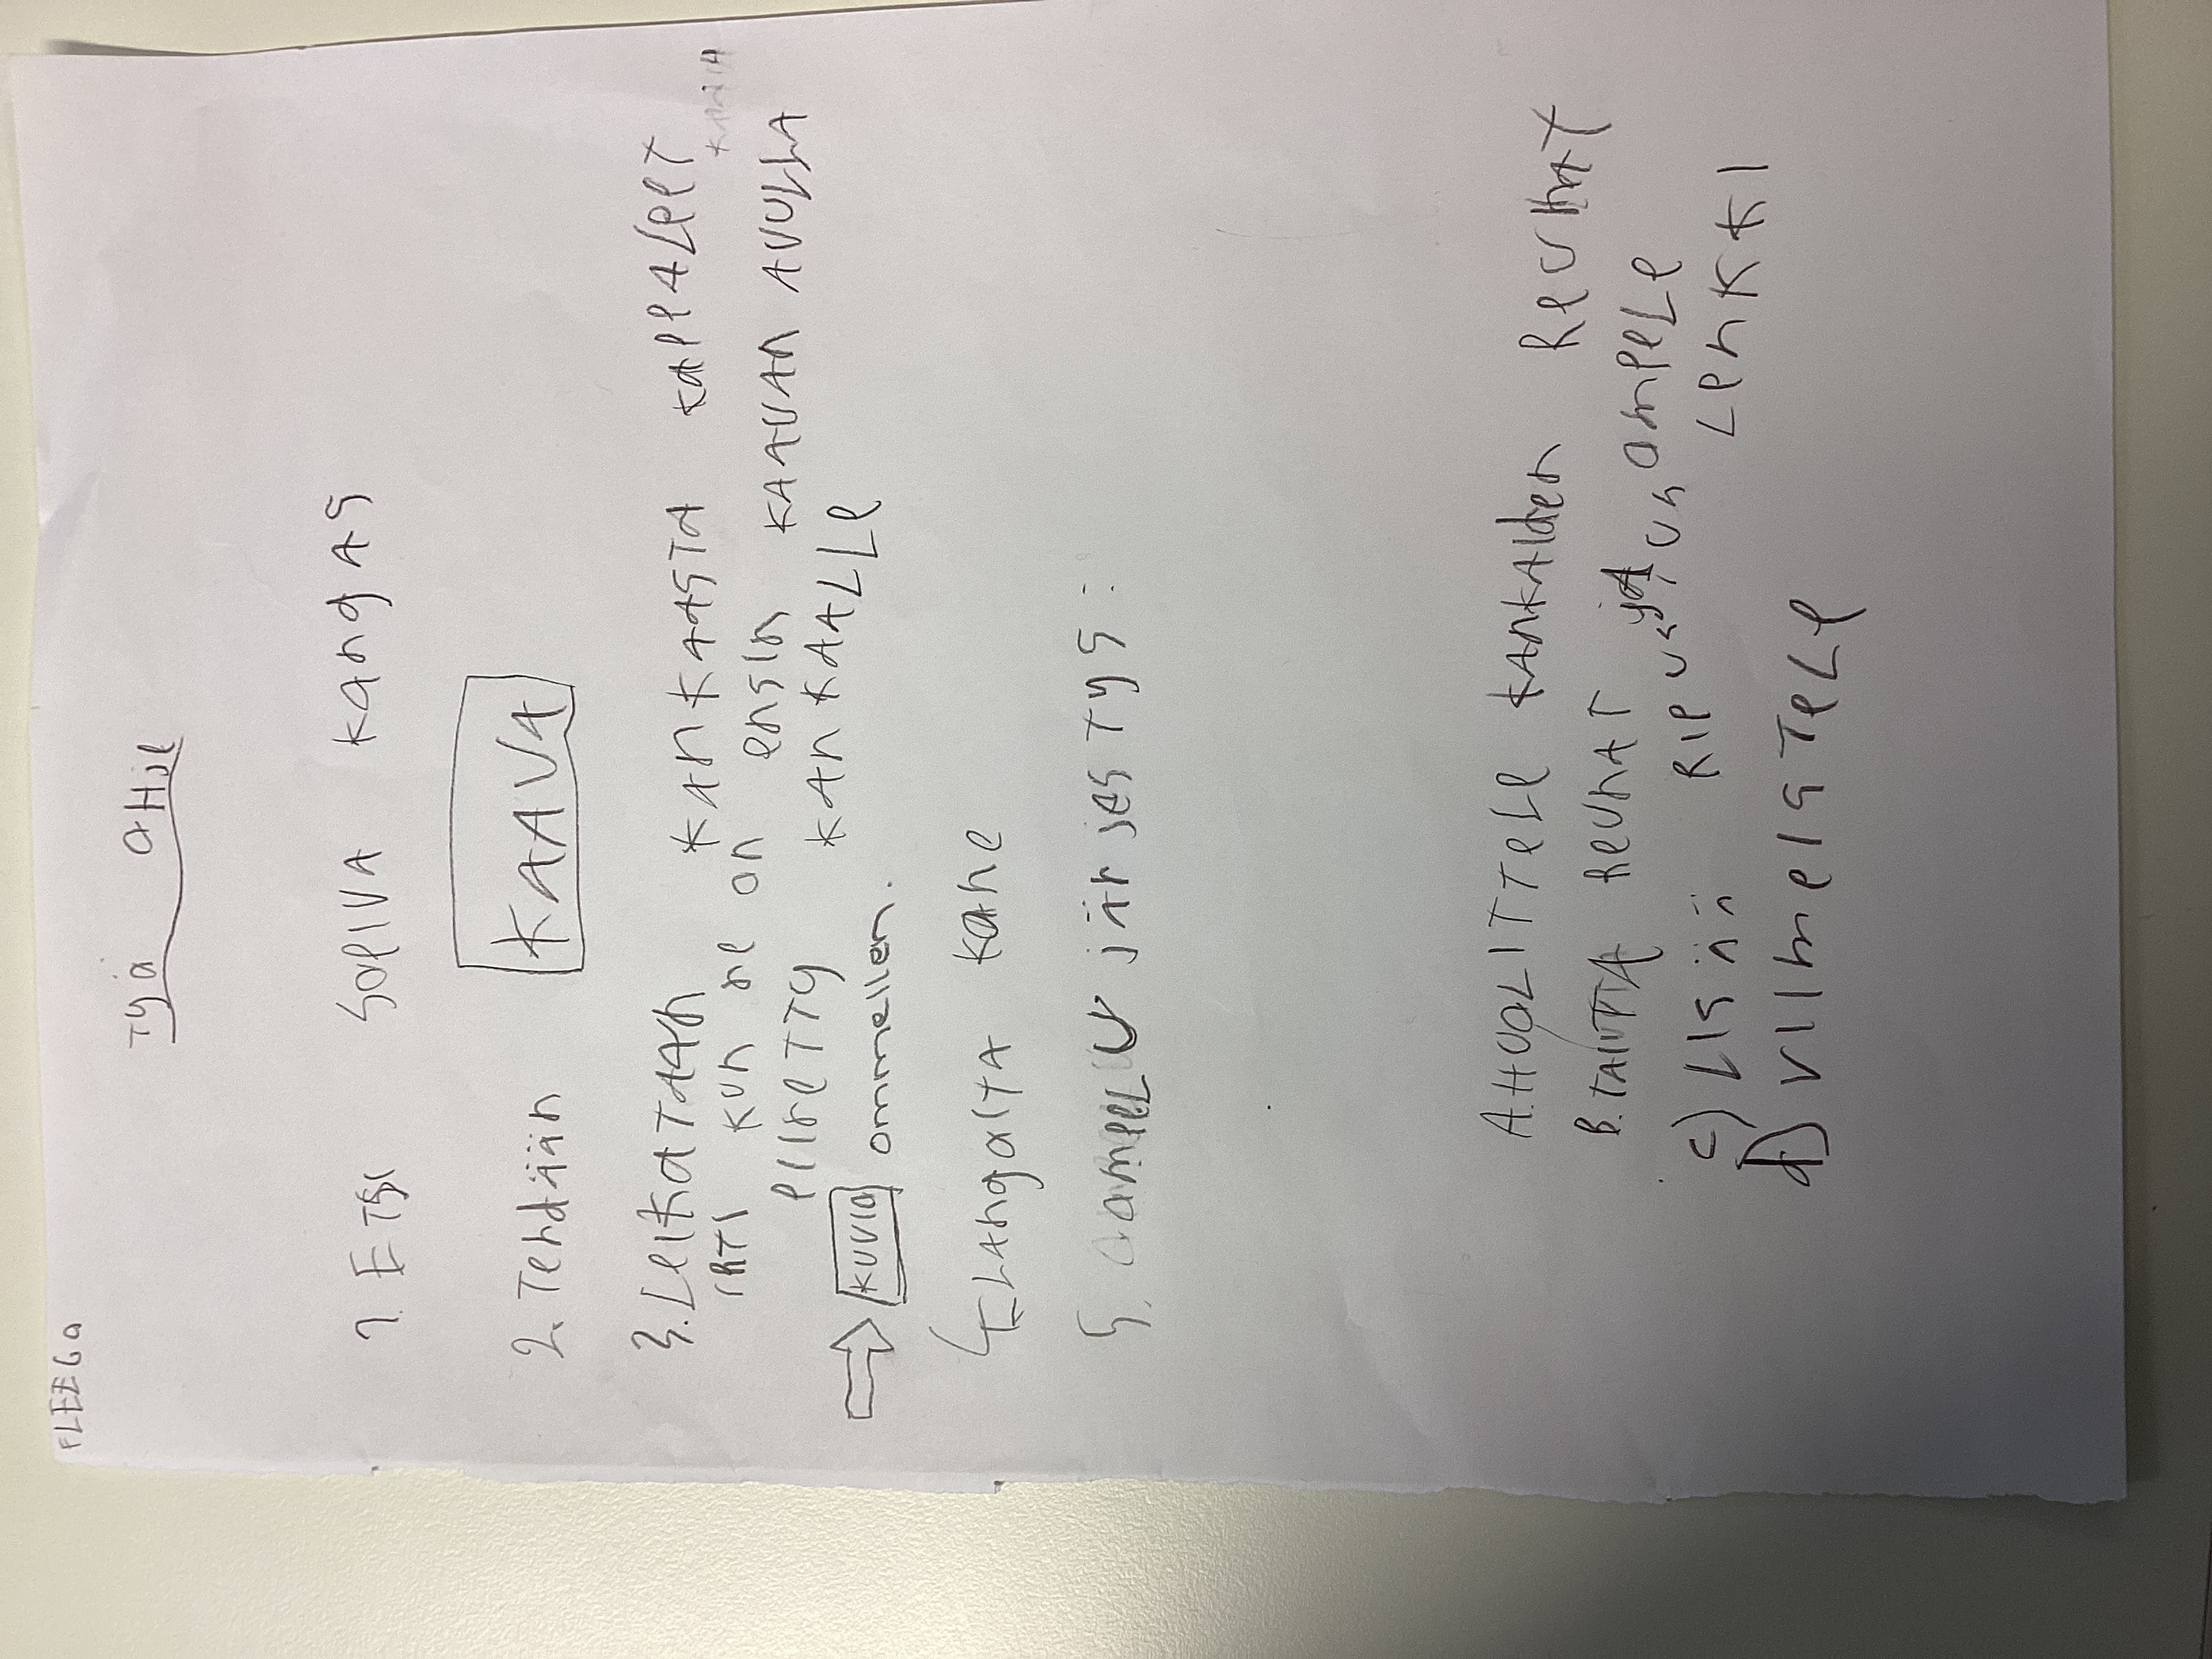 Työ OHje
1. ETSI SOPIVA KangAS
2. Tehdään KAAVA
3. LeIKATAAn KAnKAASTA KAPPALeeT
KUn se On ensin KAAVAn AVULLA
PIIReTTY KAnKAALLe
KUVIO ommellen.
4. LAngOITA KOne
5. OmpeLU järjesTys:
A. HUOLITTeLe KAnKAIden ReUnAT
B. TAITA ReUnAT jA Ompele
C) LIsää RIPUsTUs LenKKI
d) VIImeIsTeLe